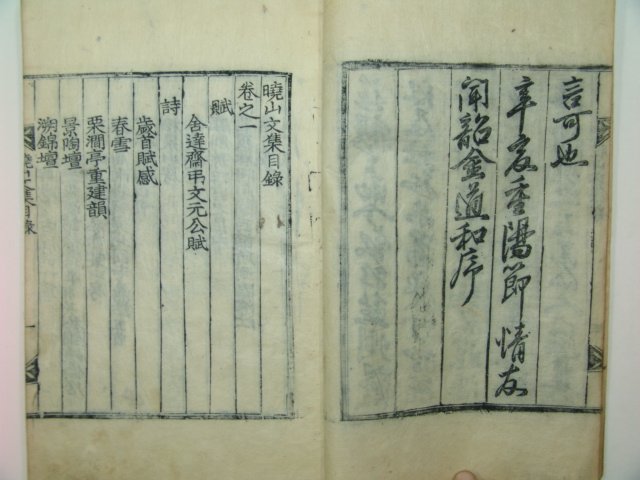 言可也
辛亥重陽節情友
聞韶金道和序
曉山文集目錄
卷之一
賦
舍達齋弔文元公賦
詩
歲首賦感
春雪
栗澗亭重建韻
景陶壇
溯錦壇
曉山文集目錄 一